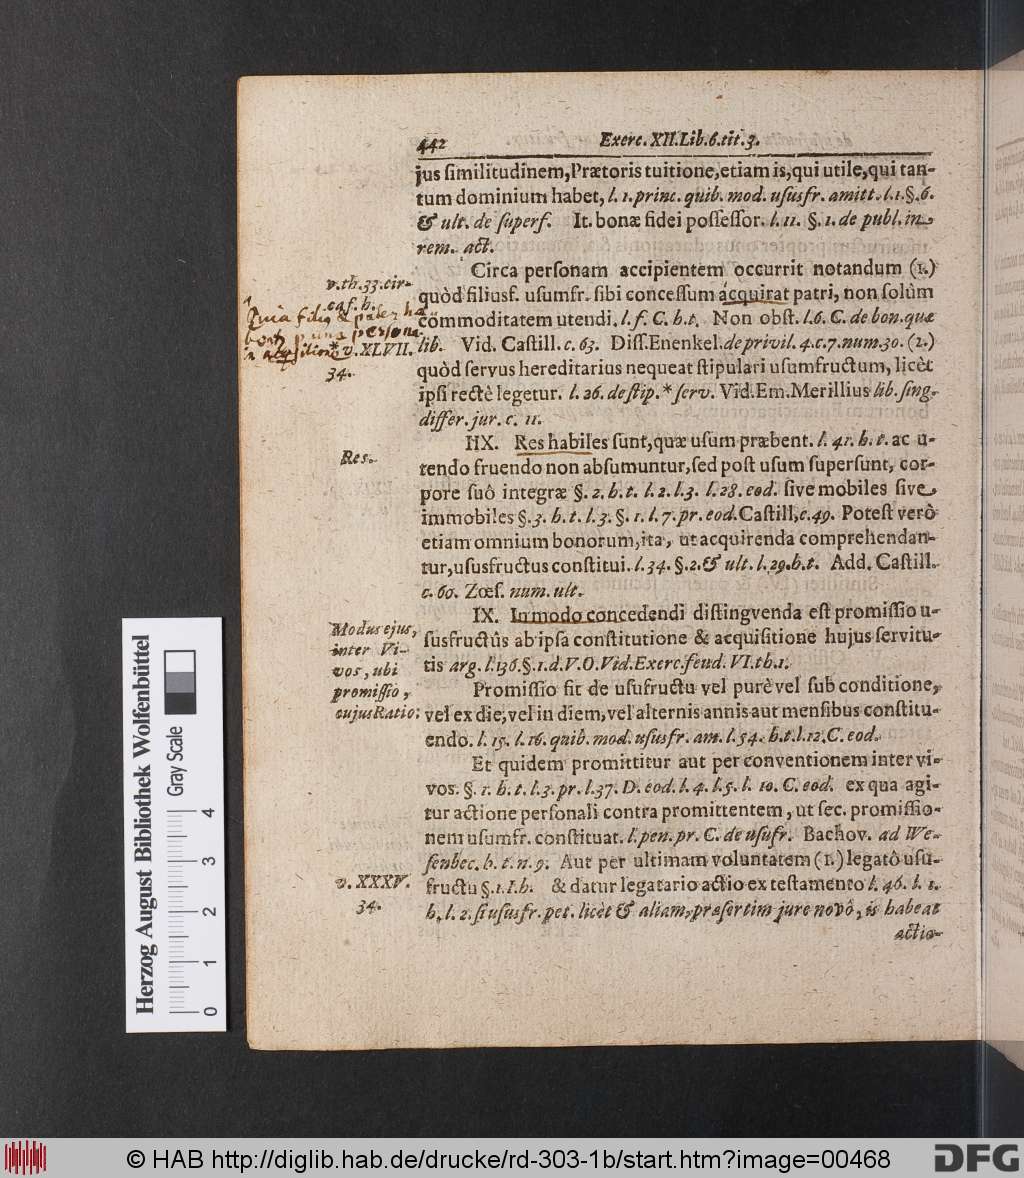 442 Exerc. XII. Lib. 6. tit. 3.
jus similitudinem, Prætoris tuitione, etiam is, qui utile, qui tan-
tum dominium habet, l. 1. princ. quib. mod. ususfr. amitt. l. 1. §. 6.
& ult. de superf. It. bonæ fidei possessor. l. 11. §. 1. de publ. in
rem. act.
Circa personam accipientem occurrit notandum (1.)
v. th. 33. cir-
quòd filiusf. usumfr. sibi concessum acquirat patri, non solùm
cas. h.
Quia filio & pater
cömmoditatem utendi. l. f. C. h. t. Non obst. l. 6. C. de bon. quæ
persona
lib. Vid. Castill. c. 63. Diss. Enenkel. de privil. 4. c. 7. num. 30. (2.)
* v. XLVII.
34.
quòd servus hereditarius nequeat stipulari usumfructum, licèt
ipsi rectè legetur. l. 26. de stip. * serv. Vid. Em. Merillius lib. sing.
differ. jur. c. 11.
IIX. Res habiles sunt, quæ usum præbent. l. 41. h. t. ac u-
Res.
tendo fruendo non absumuntur, sed post usum supersunt, cor-
pore suô integræ §. 2. h. t. l. 2. l. 3. l. 28. eod. sive mobiles sive
immobiles §. 3. h. t. l. 3. §. 1. l. 7. pr. eod. Castill, c. 49. Potest verò
etiam omnium bonorum, ita, ut acquirenda comprehendan-
tur, ususfructus constitui. l. 34. §. 2. & ult. l. 29. h. t. Add. Castill.
c. 60. Zœs. num. ult.
IX. In modo concedendi distingvenda est promissio u-
Modus ejus,
inter Vi-
vos, ubi
promissio,
cujus Ratio:
susfructûs ab ipsa constitutione & acquisitione hujus servitu-
tis arg. l. 136. §. 1. d. V. O. Vid. Exerc. feud. VI. th. 1.
Promissio fit de usufructu vel purè vel sub conditione,
vel ex die, vel in diem, vel alternis annis aut mensibus constitu-
endo. l. 15. l. 16. quib. mod. ususfr. am. l. 54. h. t. l. 12. C. eod.
Et quidem promittitur aut per conventionem inter vi-
vos. §. 1. h. t. l. 3. pr. l. 37. D. eod. l. 4. l. 5. l. 10. C. eod. ex qua agi-
tur actione personali contra promittentem, ut sec. promissio-
nem usumfr. constituat. l. pen. pr. C. de usufr. Bachov. ad We-
senbec. h. t. n. 9. Aut per ultimam voluntatem (1.) legatô usu-
v. XXXV.
34.
fructu §. 1. I. h. & datur legatario actio ex testamento l. 46. l. 1.
h, l. 2. si ususfr. pet. licèt & aliam, præsertim jure novô, is habeat
actio-
Herzog August Bibliothek Wolfenbüttel
Gray Scale
0 1 2 3 4
© HAB http://diglib.hab.de/drucke/rd-303-1b/start.htm?image=00468
DFG